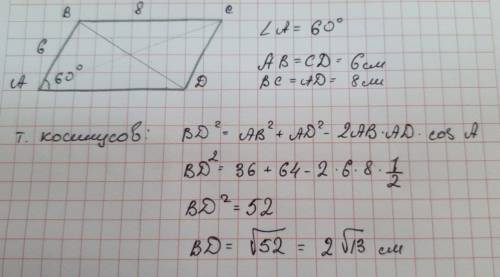 B 8 C
6
A 60° D
∠A = 60°
AB = CD = 6 см
BC = AD = 8 см
т. косинусов: BD² = AB² + AD² - 2AB · AD · cos A
BD² = 36 + 64 - 2 · 6 · 8 · 1/2
BD² = 52
BD = √52 = 2√13 см